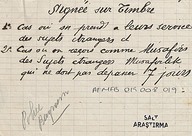 Signée sur Timbre
1º Cas où on prend à leurs service
des sujets étrangers
2º Cas où on reçois comme Musafirs
des Sujets étrangers Musafirlik
qui ne doit pas depasser 7 jours
AEMFB 015 008 019
SALT
ARAŞTIRMA